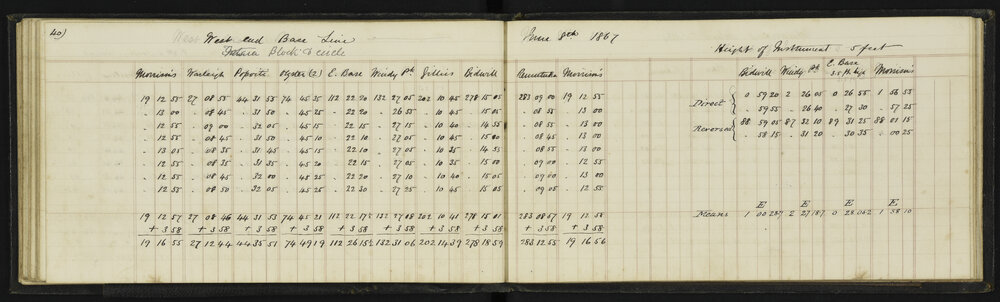 40)
West end Base Line
Block & circle
June 8th 1867
Height of Instrument 5 feet
Morrison's Oyster (2) E. Base Windy Pk Gillies Bidwill Morrison's
E. Base
Bidwill Windy Pk Morrison's
19 12 55 27 08 55 44 31 55 74 45 35 112 22 20 132 27 05 202 10 45 278 15 05 283 09 00 19 12 55
. 13 00 . 08 45 . 31 50 . 45 25 . 22 20 . 26 55 . 10 45 . 15 05 . 08 55 . 13 00
. 12 55 . 09 00 . 32 05 . 45 15 . 22 15 . 27 15 . 10 40 . 14 55 . 08 45 . 13 00
. 12 55 . 08 45 . 31 50 . 45 10 . 22 10 . 27 05 . 10 45 . 15 00 . 08 55 . 13 00
. 13 05 . 08 35 . 31 45 . 45 15 . 22 10 . 27 05 . 10 35 . 14 55 . 08 55 . 13 00
. 12 55 . 08 35 . 31 35 . 45 20 . 22 15 . 27 05 . 10 35 . 15 00 . 09 00 . 12 55
. 12 55 . 08 45 . 32 00 . 45 25 . 22 20 . 27 10 . 10 40 . 15 00 . 09 00 . 13 00
. 12 55 . 08 50 . 32 05 . 45 25 . 22 30 . 27 25 . 10 45 . 15 05 . 09 05 . 12 55
19 12 57 27 08 46 44 31 53 74 45 21 112 22 175 132 27 08 202 10 41 278 15 01 283 08 57 19 12 58
+ 3 58 + 3 58 + 3 58 + 3 58 + 3 58 + 3 58 + 3 58 + 3 58 + 3 58 + 3 58
19 16 55 27 12 44 44 35 51 74 49 19 112 26 15½ 132 31 06 202 14 39 278 18 59 283 12 55 19 16 56
Direct 0 59 20 2 26 05 0 26 55 1 56 55
. 59 55 . 26 40 . 27 30 . 57 25
Reversed 88 59 05 87 32 10 89 31 25 88 01 15
. 58 15 . 31 20 . 30 35 . 00 25
E E E E
Means 1 00 2 27 0 28 1 58 10